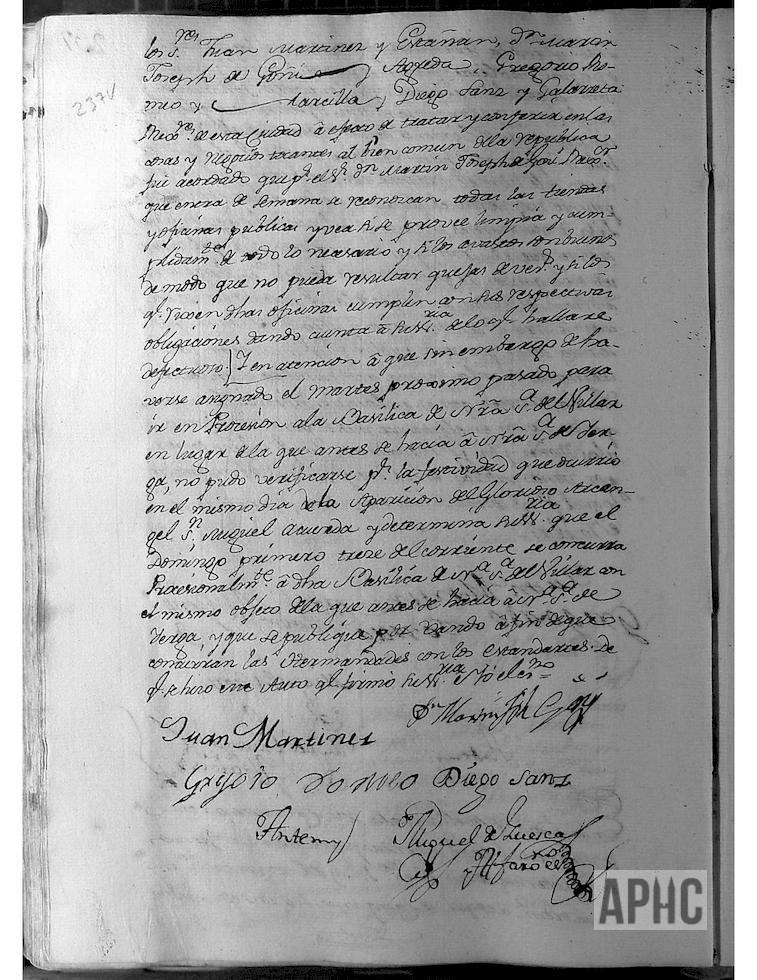 237V
los S.res Juan Martinez y Estañan, Dn Martin
Joseph de Goñi y Agreda, Gregorio Ro-
meo y Marcilla, Diego Sanz y Galarreta
Rex.res de esta Ciudad â efecto de tratar y conferir en las
cosas y negocios tocantes al bien comun de la republica
fue acordado que p.r el S.r Dn Martin Joseph de Goñi Rex.or
que entra de semana se reconozcan todas las tiendas
y oficinas publicas y vea si se provee limpia y cum-
plidam.te de todo lo necesario y si los avastos son buenos
de modo que no pueda resultar quejas de vez.s y si los
q.e viven dhas oficinas cumplen con sus respectivas
obligaciones dando cuenta â su S.ria de lo q.e hallare
defectuoso. Y en atencion â que sin embargo de ha-
verse asignado el Martes proximo pasado para
ir en Procesion a la Basilica de Nra S.a del Villar
en lugar de la que antes se hacia â Nra S.a de Yer-
ga, no pudo verificarse p.r la festividad que ocurrio
en el mismo dia de la Aparicion del Glorioso Arcan-
gel S.n Miguel acuerda y determina su S.ria que el
Domingo primero treze del corriente se concurra
Procesionalm.te â dha Basilica de N.ra S.a del Villar con
el mismo objeto de la que antes se hacia â N.ra S.a de
Yerga, y que se publique por vando â fin de que
concurran las Hermandades con los estandartes. de
q.e se hizo este Auto q.e firmó su S.ria Y Yo el es.no =
Dn Martin Jph Goñi
Juan Martinez
Gregorio Romeo Diego Sanz
Ante my
Miguel de Huesca
y Alfaro es.no
APHC